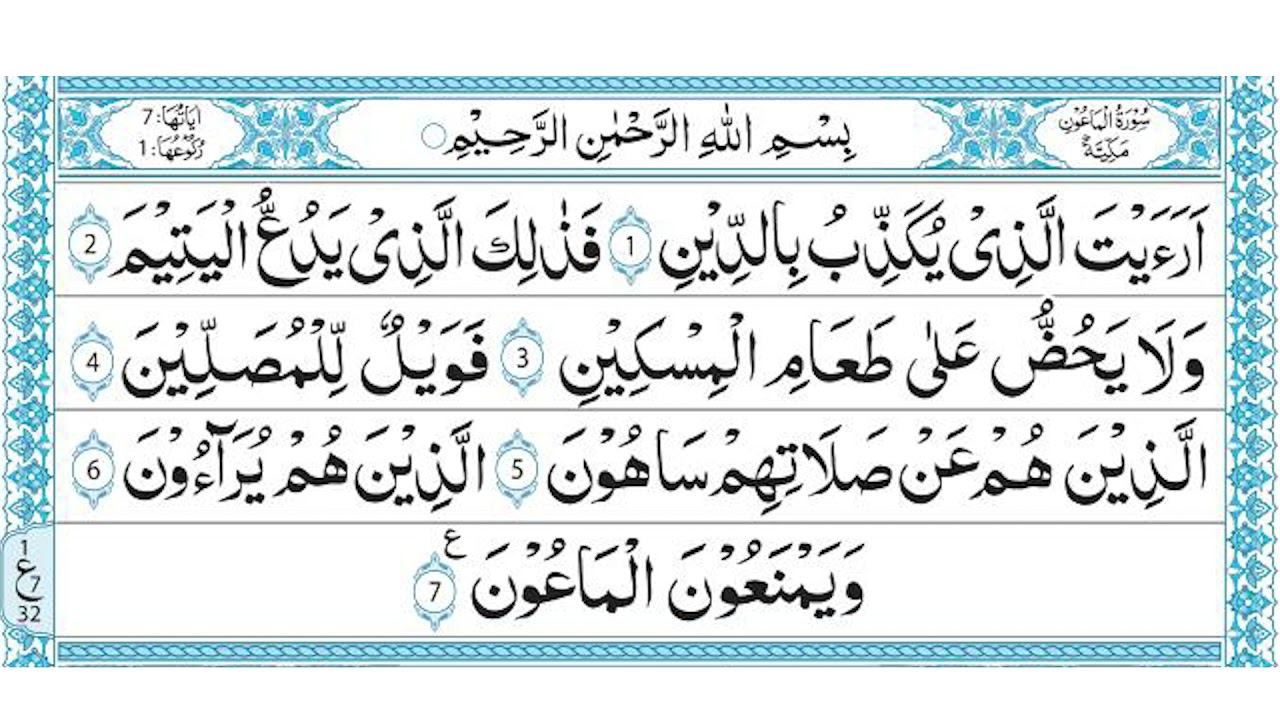 سُوْرَةُ الْمَاعُوْنِ
مَكِّيَّةٌ
بِسْمِ اللّٰهِ الرَّحْمٰنِ الرَّحِيْمِ
اٰيَاتُهَا: 7
رُكُوْعُهَا: 1
اَرَءَيْتَ الَّذِىْ يُكَذِّبُ بِالدِّيْنِ 1 فَذٰلِكَ الَّذِىْ يَدُعُّ الْيَتِيْمَ 2
وَلَا يَحُضُّ عَلٰى طَعَامِ الْمِسْكِيْنِ 3 فَوَيْلٌ لِّلْمُصَلِّيْنَ 4
الَّذِيْنَ هُمْ عَنْ صَلَاتِهِمْ سَاهُوْنَ 5 الَّذِيْنَ هُمْ يُرَآءُوْنَ 6
وَيَمْنَعُوْنَ الْمَاعُوْنَ 7 ع
1
ع 7
32